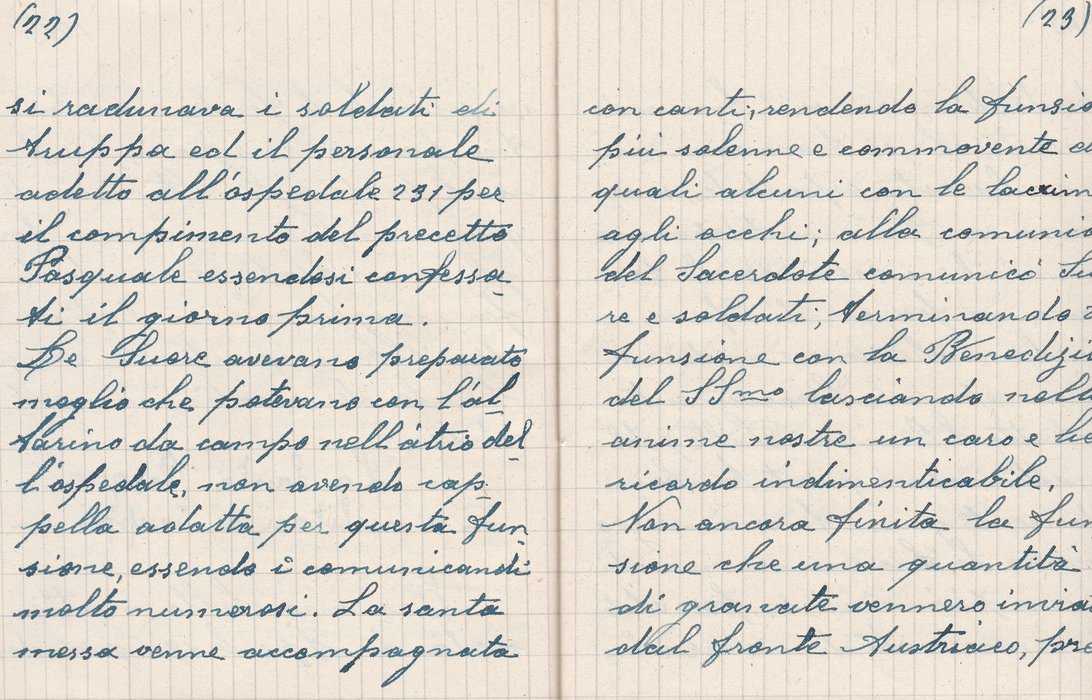 (22)
si radunava i soldati di
truppa ed il personale
adetto all'ospedale 231 per
il compimento del precetto
Pasquale essendosi confessa-
ti il giorno prima.
Le Suore avevano preparato
meglio che potevano con l'al-
tarino da campo nell'atrio del-
l'ospedale, non avendo cap-
pella adatta per questa fun-
sione, essendo i comunicandi
molto numerosi. La santa
messa venne accompagnata
(23)
con canti, rendendo la funsio
più solenne e commovente d
quali alcuni con le lacrim
agli occhi; alla comunio
del Sacerdote comunicò Su
re e soldati; terminando
funsione con la Benedizi
del SSmo lasciando nelle
anime nostre un caro e
ricordo indimenticabile.
Non ancora finita la fun
sione che una quantità
di granate vennero invia
dal fronte Austriaco, pre